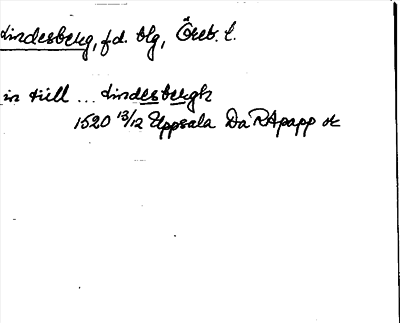 Lindesberg, f.d. blg, Öreb. l.
in till ... Lindesbergh
1520 13/12 Uppsala Da RApapp or